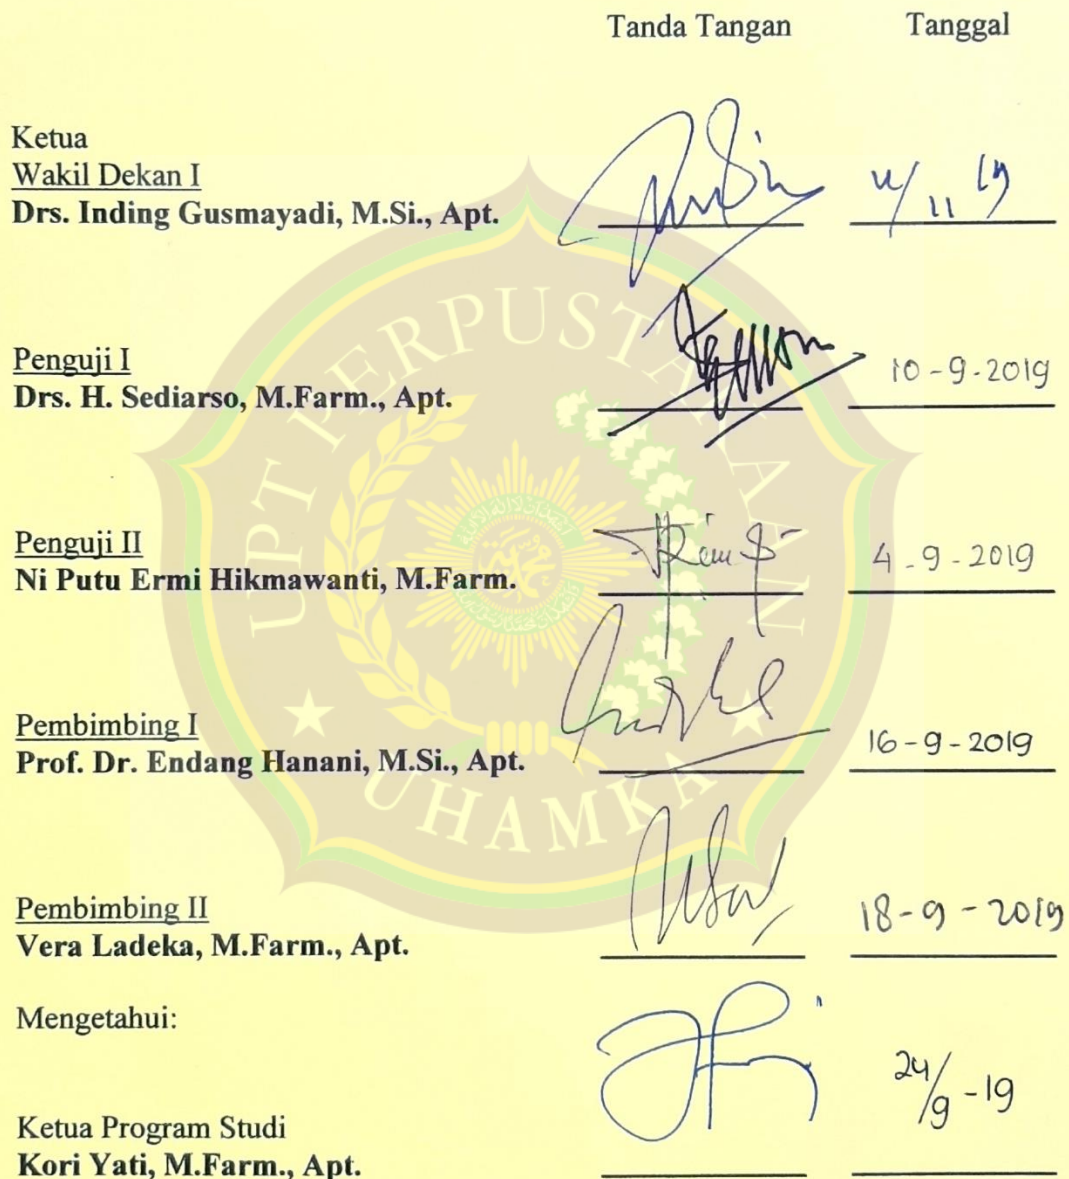 Tanda Tangan Tanggal
Ketua
Wakil Dekan I
Drs. Inding Gusmayadi, M.Si., Apt.
Penguji I
Drs. H. Sediarso, M.Farm., Apt. 10-9-2019
Penguji II
Ni Putu Ermi Hikmawanti, M.Farm. 4-9-2019
Pembimbing I
Prof. Dr. Endang Hanani, M.Si., Apt. 16-9-2019
Pembimbing II
Vera Ladeka, M.Farm., Apt. 18-9-2019
Mengetahui:
24/9-19
Ketua Program Studi
Kori Yati, M.Farm., Apt.
UPT PERPUSTAKAAN
UHAMKA